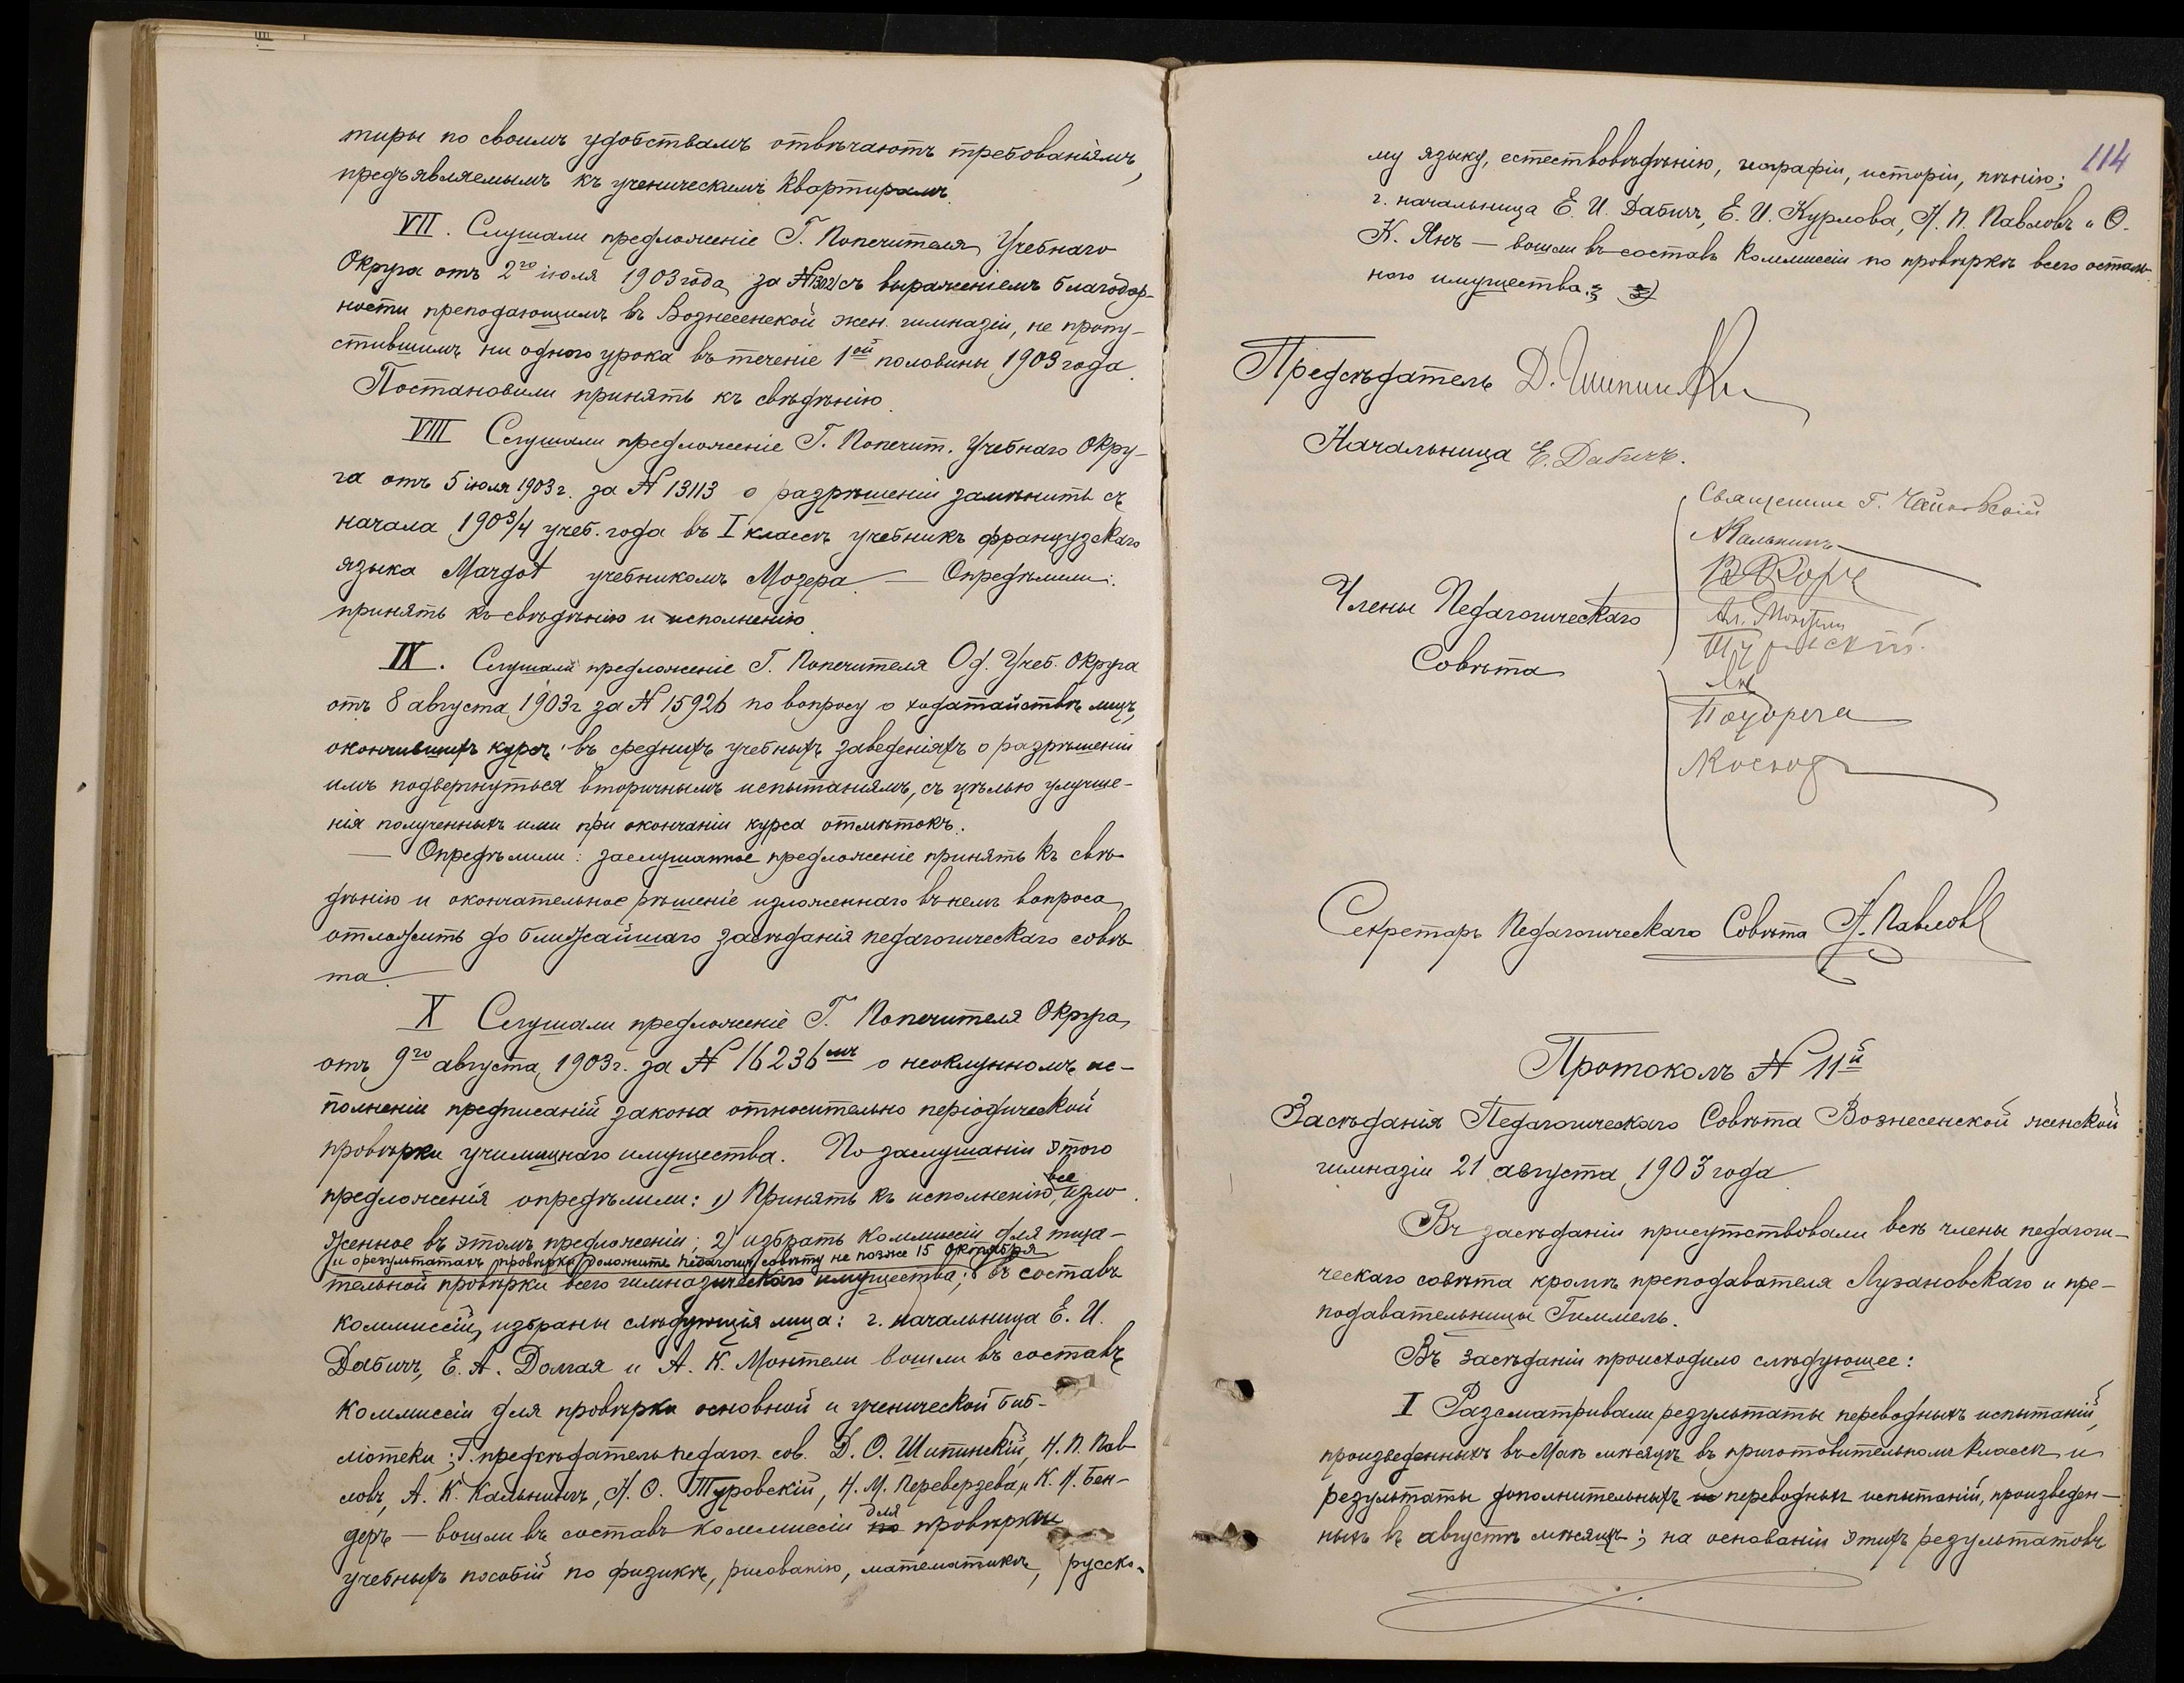 тиры по своимъ удобствамъ отвѣчаютъ требованіямъ,
предъявляемымъ къ ученическимъ квартирамъ.
VII. Слушали предложеніе Г. Попечителя Учебнаго
Округа отъ 2го іюля 1903 года за № съ выраженіемъ благодар-
ности преподающимъ въ Вознесенской жен. гимназіи, не пропу-
стившимъ ни одного урока въ теченіе 1ой половины 1903 года.
Постановили принять къ свѣдѣнію.
VIII Слушали предложеніе Г. Попечит. Учебнаго Окру-
га отъ 5 іюля 1903 г. за № 13113 о разрѣшеніи замѣнить съ
начала 1903/4 учеб. года въ I классѣ учебникъ французскаго
языка Margot учебникомъ Мозера. — Опредѣлили:
принять къ свѣдѣнію и исполненію.
IX. Слушали предложеніе Г. Попечителя Од. Учеб. Округа
отъ 8 августа 1903 г за № 15926 по вопросу о ходатайствѣ лицъ,
окончившихъ курсъ въ среднихъ учебныхъ заведеніяхъ о разрѣшеніи
имъ подвергнуться вторичнымъ испытаніямъ, съ цѣлью улучше-
нія полученныхъ ими при окончаніи курса отмѣтокъ.
— Опредѣлили: заслушанное предложеніе принять къ свѣ-
дѣнію и окончательное рѣшеніе изложеннаго въ немъ вопроса
отложить до ближайшаго засѣданія педагогическаго совѣ-
та.
X Слушали предложеніе Г. Попечителя Округа
отъ 9го августа 1903 г. за № 16236мъ о неоклунномъ ис-
полненіи предписаній закона относительно періодической
провѣрки училищнаго имущества. По заслушаніи этого
предложенія опредѣлили: 1) Принять къ исполненію все изло-
женное въ этомъ предложеніи; 2) избрать коммиссіи для тща-
и о результатахъ провѣрки доложить педагогич. совѣту не позже 15 октября
тельной провѣрки всего гимназическаго имущества; въ составъ
коммиссій избраны слѣдующія лица: г. начальница Е. И.
Дабичъ, Е. А. Долгая и А. К. Монтели вошли въ составъ
коммиссіи для провѣрки основной и ученической биб-
ліотеки; Г. предсѣдатель педагог. сов. Д. О. Шипинскій, Н. П. Пав-
ловъ, А. К. Кальнинъ, Н. О. Туровскій, Н. М. Переверзева и К. Н. Бен-
деръ — вошли въ составъ коммиссіи для провѣрки
учебныхъ пособій по физикѣ, рисованію, математикѣ, русско-
114
му языку, естествовѣдѣнію, географіи, исторіи, пѣнію;
г. начальница Е. И. Дабичъ, Е. И. Курлова, Н. П. Павловъ и О.
К. Янъ — вошли въ составъ коммиссіи по провѣркѣ всего осталь-
ного имущества.
Предсѣдатель Д. Шипинскій
Начальница Е. Дабичъ.
Священникъ Г. Чайковскій
АКальнинъ
Члены Педагогическаго
Совѣта
Ал. Монтели
Туровскій
Янъ
Секретарь Педагогическаго Совѣта Н. Павловъ
Протоколъ № 11й
Засѣданія Педагогическаго Совѣта Вознесенской женской
гимназіи 21 августа 1903 года
Въ засѣданіи присутствовали всѣ члены педагоги-
ческаго совѣта кромѣ преподавателя Лузановскаго и пре-
подавательницы Гиммель.
Въ засѣданіи происходило слѣдующее:
I Разсматривали результаты переводныхъ испытаній,
произведенныхъ въ Маѣ мѣсяцѣ въ приготовительномъ классѣ и
результаты дополнительныхъ переводныхъ испытаній, произведен-
ныхъ въ августѣ мѣсяцѣ; на основаніи этихъ результатовъ